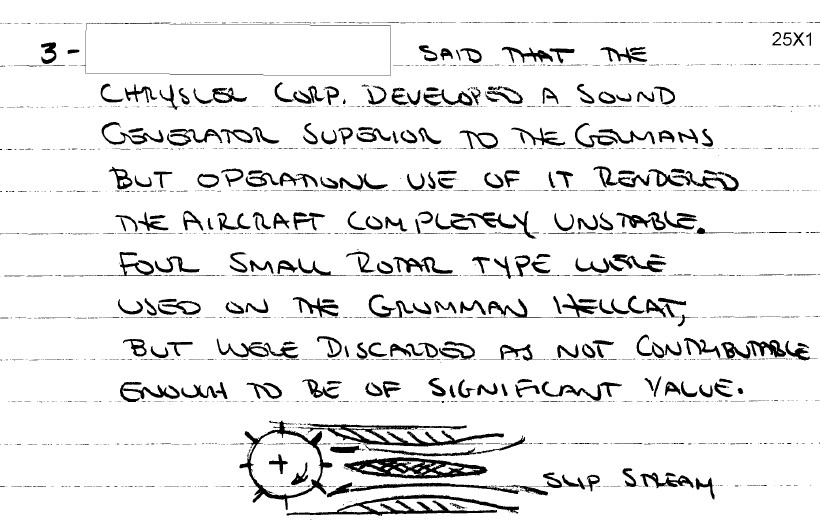 25X1
3 - SAID THAT THE
CHRYSLER CORP. DEVELOPED A SOUND
GENERATOR SUPERIOR TO THE GERMANS
BUT OPERATIONL USE OF IT RENDERED
THE AIRCRAFT COMPLETELY UNSTABLE.
FOUR SMALL ROTAR TYPE WERE
USED ON THE GRUMMAN HELLCAT,
BUT WERE DISCARDED AS NOT CONTRIBUTABLE
ENOUGH TO BE OF SIGNIFICANT VALUE.
SLIP STREAM